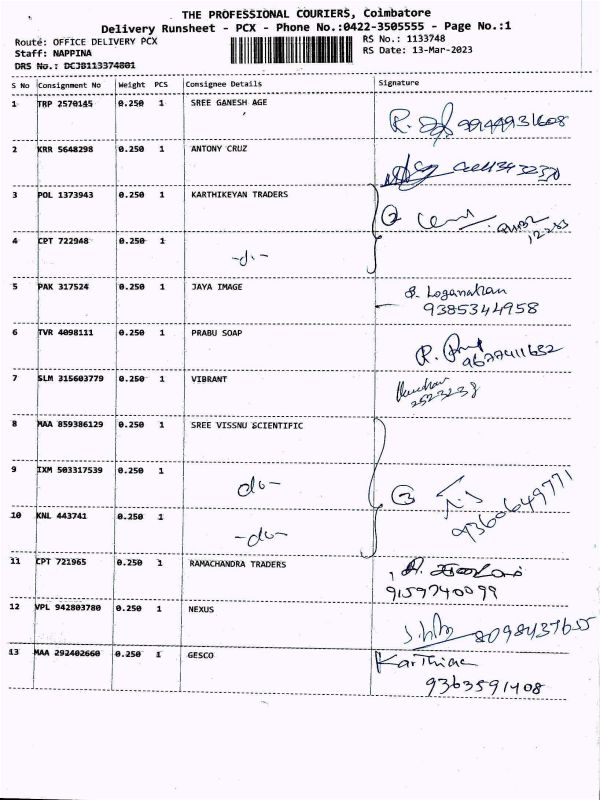 THE PROFESSIONAL COURIERS, Coimbatore
Delivery Runsheet - PCX - Phone No.:0422-3505555 - Page No.:1
Route: OFFICE DELIVERY PCX
RS No.: 1133748
Staff: NAPPINA
RS Date: 13-Mar-2023
DRS No.: DCJB113374801
S No Consignment No Weight PCS Consignee Details Signature
1 TRP 2570145 0.250 1 SREE GANESH AGE
2 KRR 5648298 0.250 1 ANTONY CRUZ
3 POL 1373943 0.250 1 KARTHIKEYAN TRADERS
②
4 CPT 722948 0.250 1 -do-
5 PAK 317524 0.250 1 JAYA IMAGE S. Loganathan
9385344958
6 TVR 4098111 0.250 1 PRABU SOAP
9677411652
7 SLM 315603779 0.250 1 VIBRANT
2523238
8 MAA 859386129 0.250 1 SREE VISSNU SCIENTIFIC
9 IXM 503317539 0.250 1 -do- ③
9360649771
10 KNL 443741 0.250 1 -do-
11 CPT 721965 0.250 1 RAMACHANDRA TRADERS
9159740099
12 VPL 942803780 0.250 1 NEXUS
8098437655
13 MAA 292402660 0.250 1 GESCO
9363591408